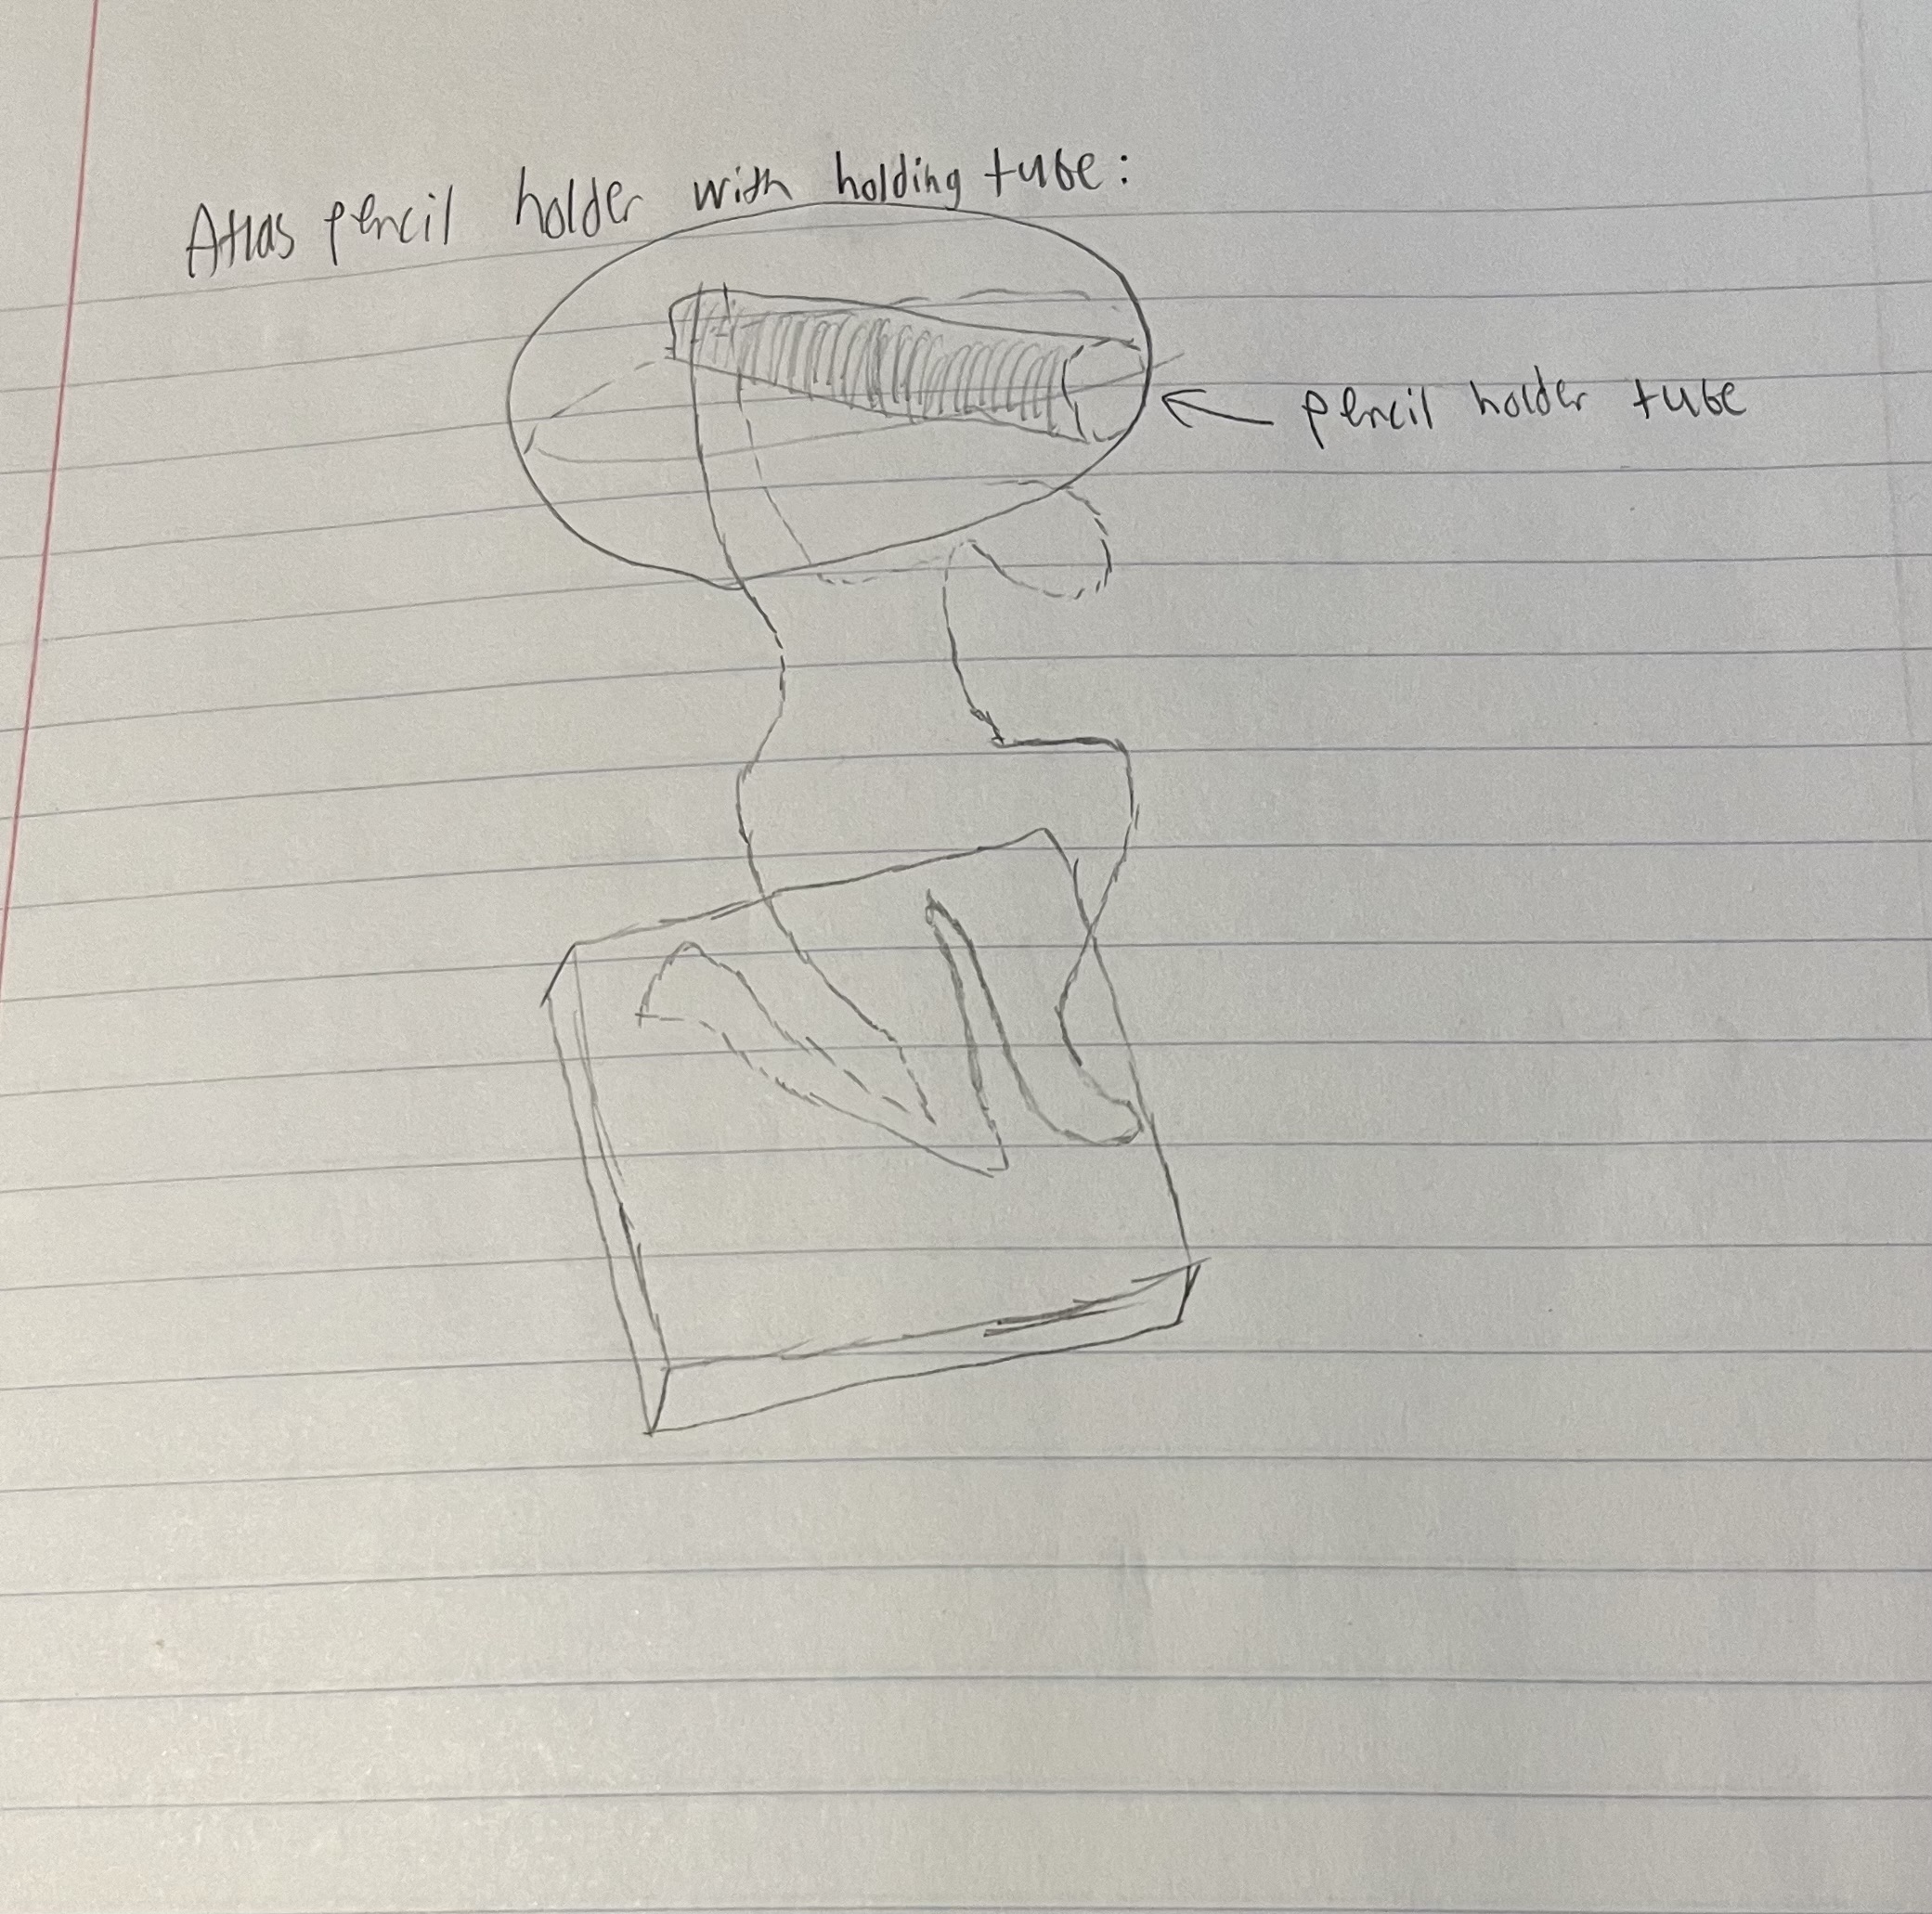 Atlas pencil holder with holding tube:
pencil holder tube